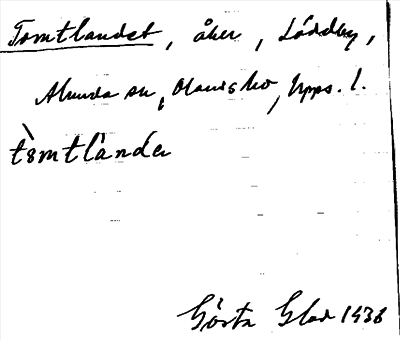 Tomtlandet, åker, Löddby,
Almunda sn, Olands hd, Upps. l.
tòmtlànde
Gösta Glad 1936